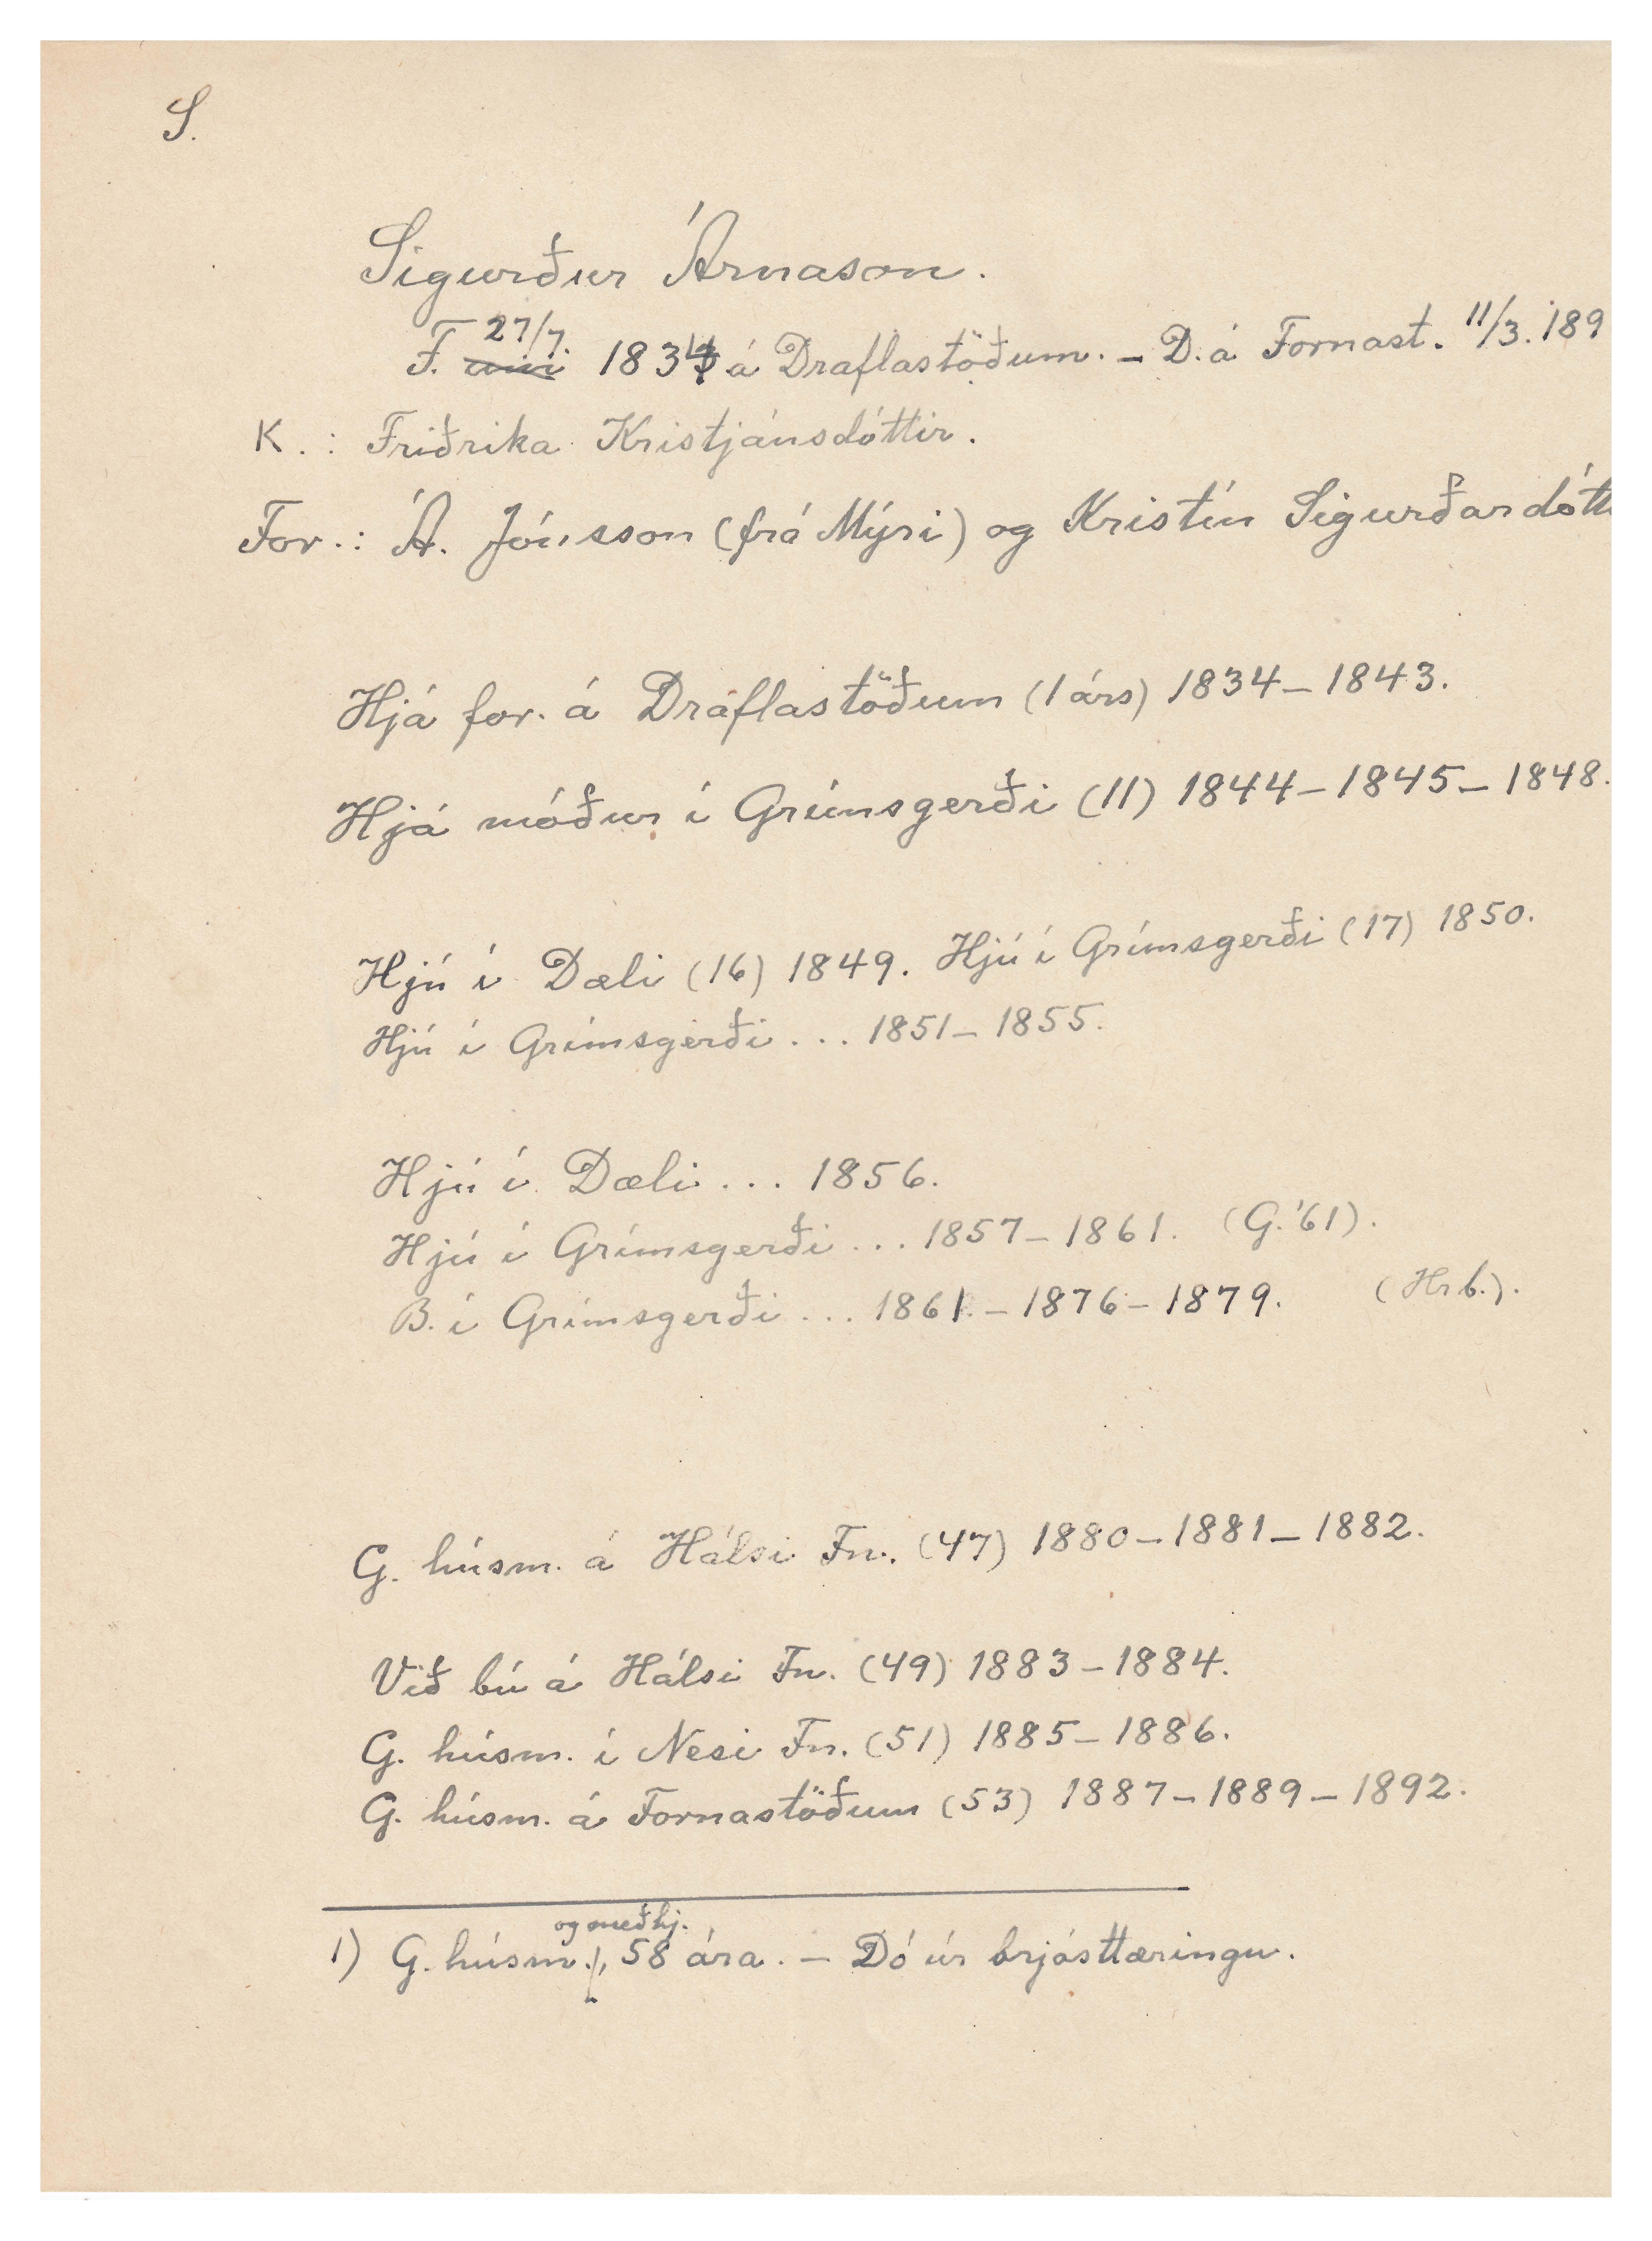 S.
Sigurður Árnason.
F. 27/7. 1834 á Draflastöðum. – D. á Fornast. 11/3. 189
K. : Friðrika Kristjánsdóttir.
For. : Á. Jónsson (frá Mýri) og Kristín Sigurðardótt
Hjá for. á Draflastöðum (1 árs) 1834 – 1843.
Hjá móður í Grímsgerði (11) 1844 – 1845 – 1848.
Hjú í Dæli (16) 1849. Hjú í Grímsgerði (17) 1850.
Hjú í Grímsgerði ... 1851 – 1855.
Hjú í Dæli ... 1856.
Hjú í Grímsgerði ... 1857 – 1861. (G. '61).
B. í Grímsgerði ... 1861 – 1876 – 1879. (Hrb.).
G. húsm. á Hálsi Fn. (47) 1880 – 1881 – 1882.
Við bú á Hálsi Fn. (49) 1883 – 1884.
G. húsm. í Nesi Fn. (51) 1885 – 1886.
G. húsm. á Fornastöðum (53) 1887 – 1889 – 1892.
1) G. húsm. og meðhj., 58 ára. – Dó úr brjósttæringu.